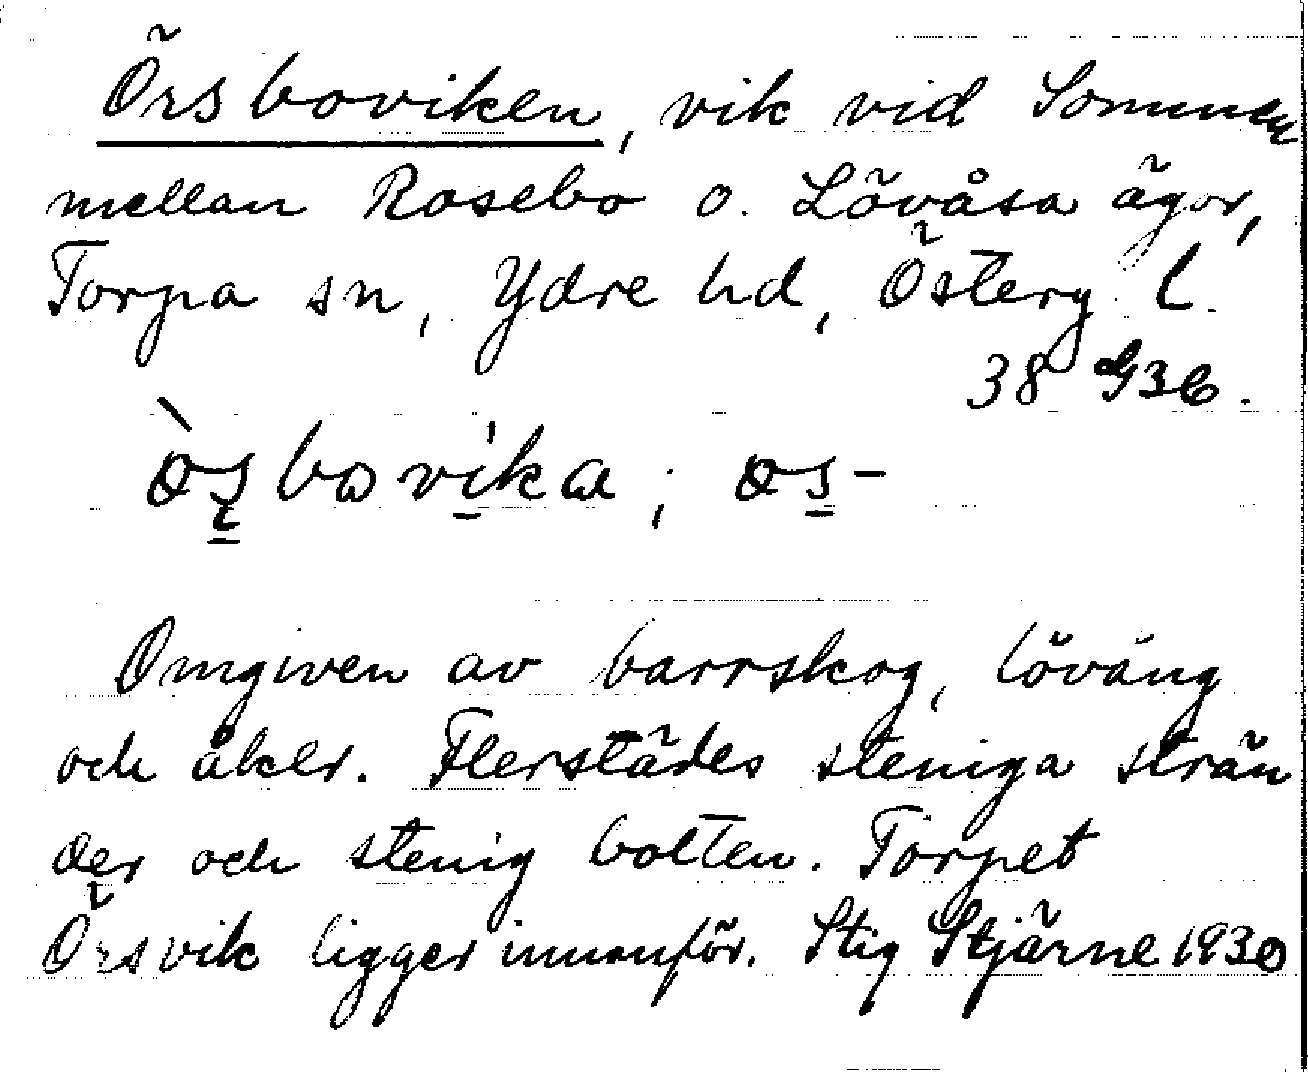 Örsboviken, vik vid Sommen
mellan Rosebo o. Lövåsa ägor,
Torpa sn, Ydre hd, Österg l.
38 G3c.
Omgiven av barrskog, löväng
och åker. Flerstädes steniga strän
der och stenig botten. Torpet
Örsvik ligger innanför. Stig Stjärne 1930